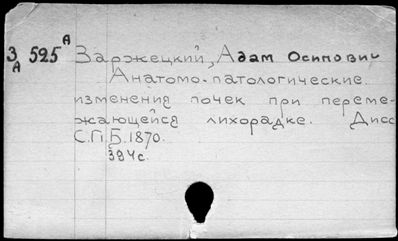 З 525 А Заржецкий, Адам Осипович
А Анатомо-патологические
изменения почек при переме-
жающейся лихорадке. Дисс
С.П.Б. 1870.
394с.